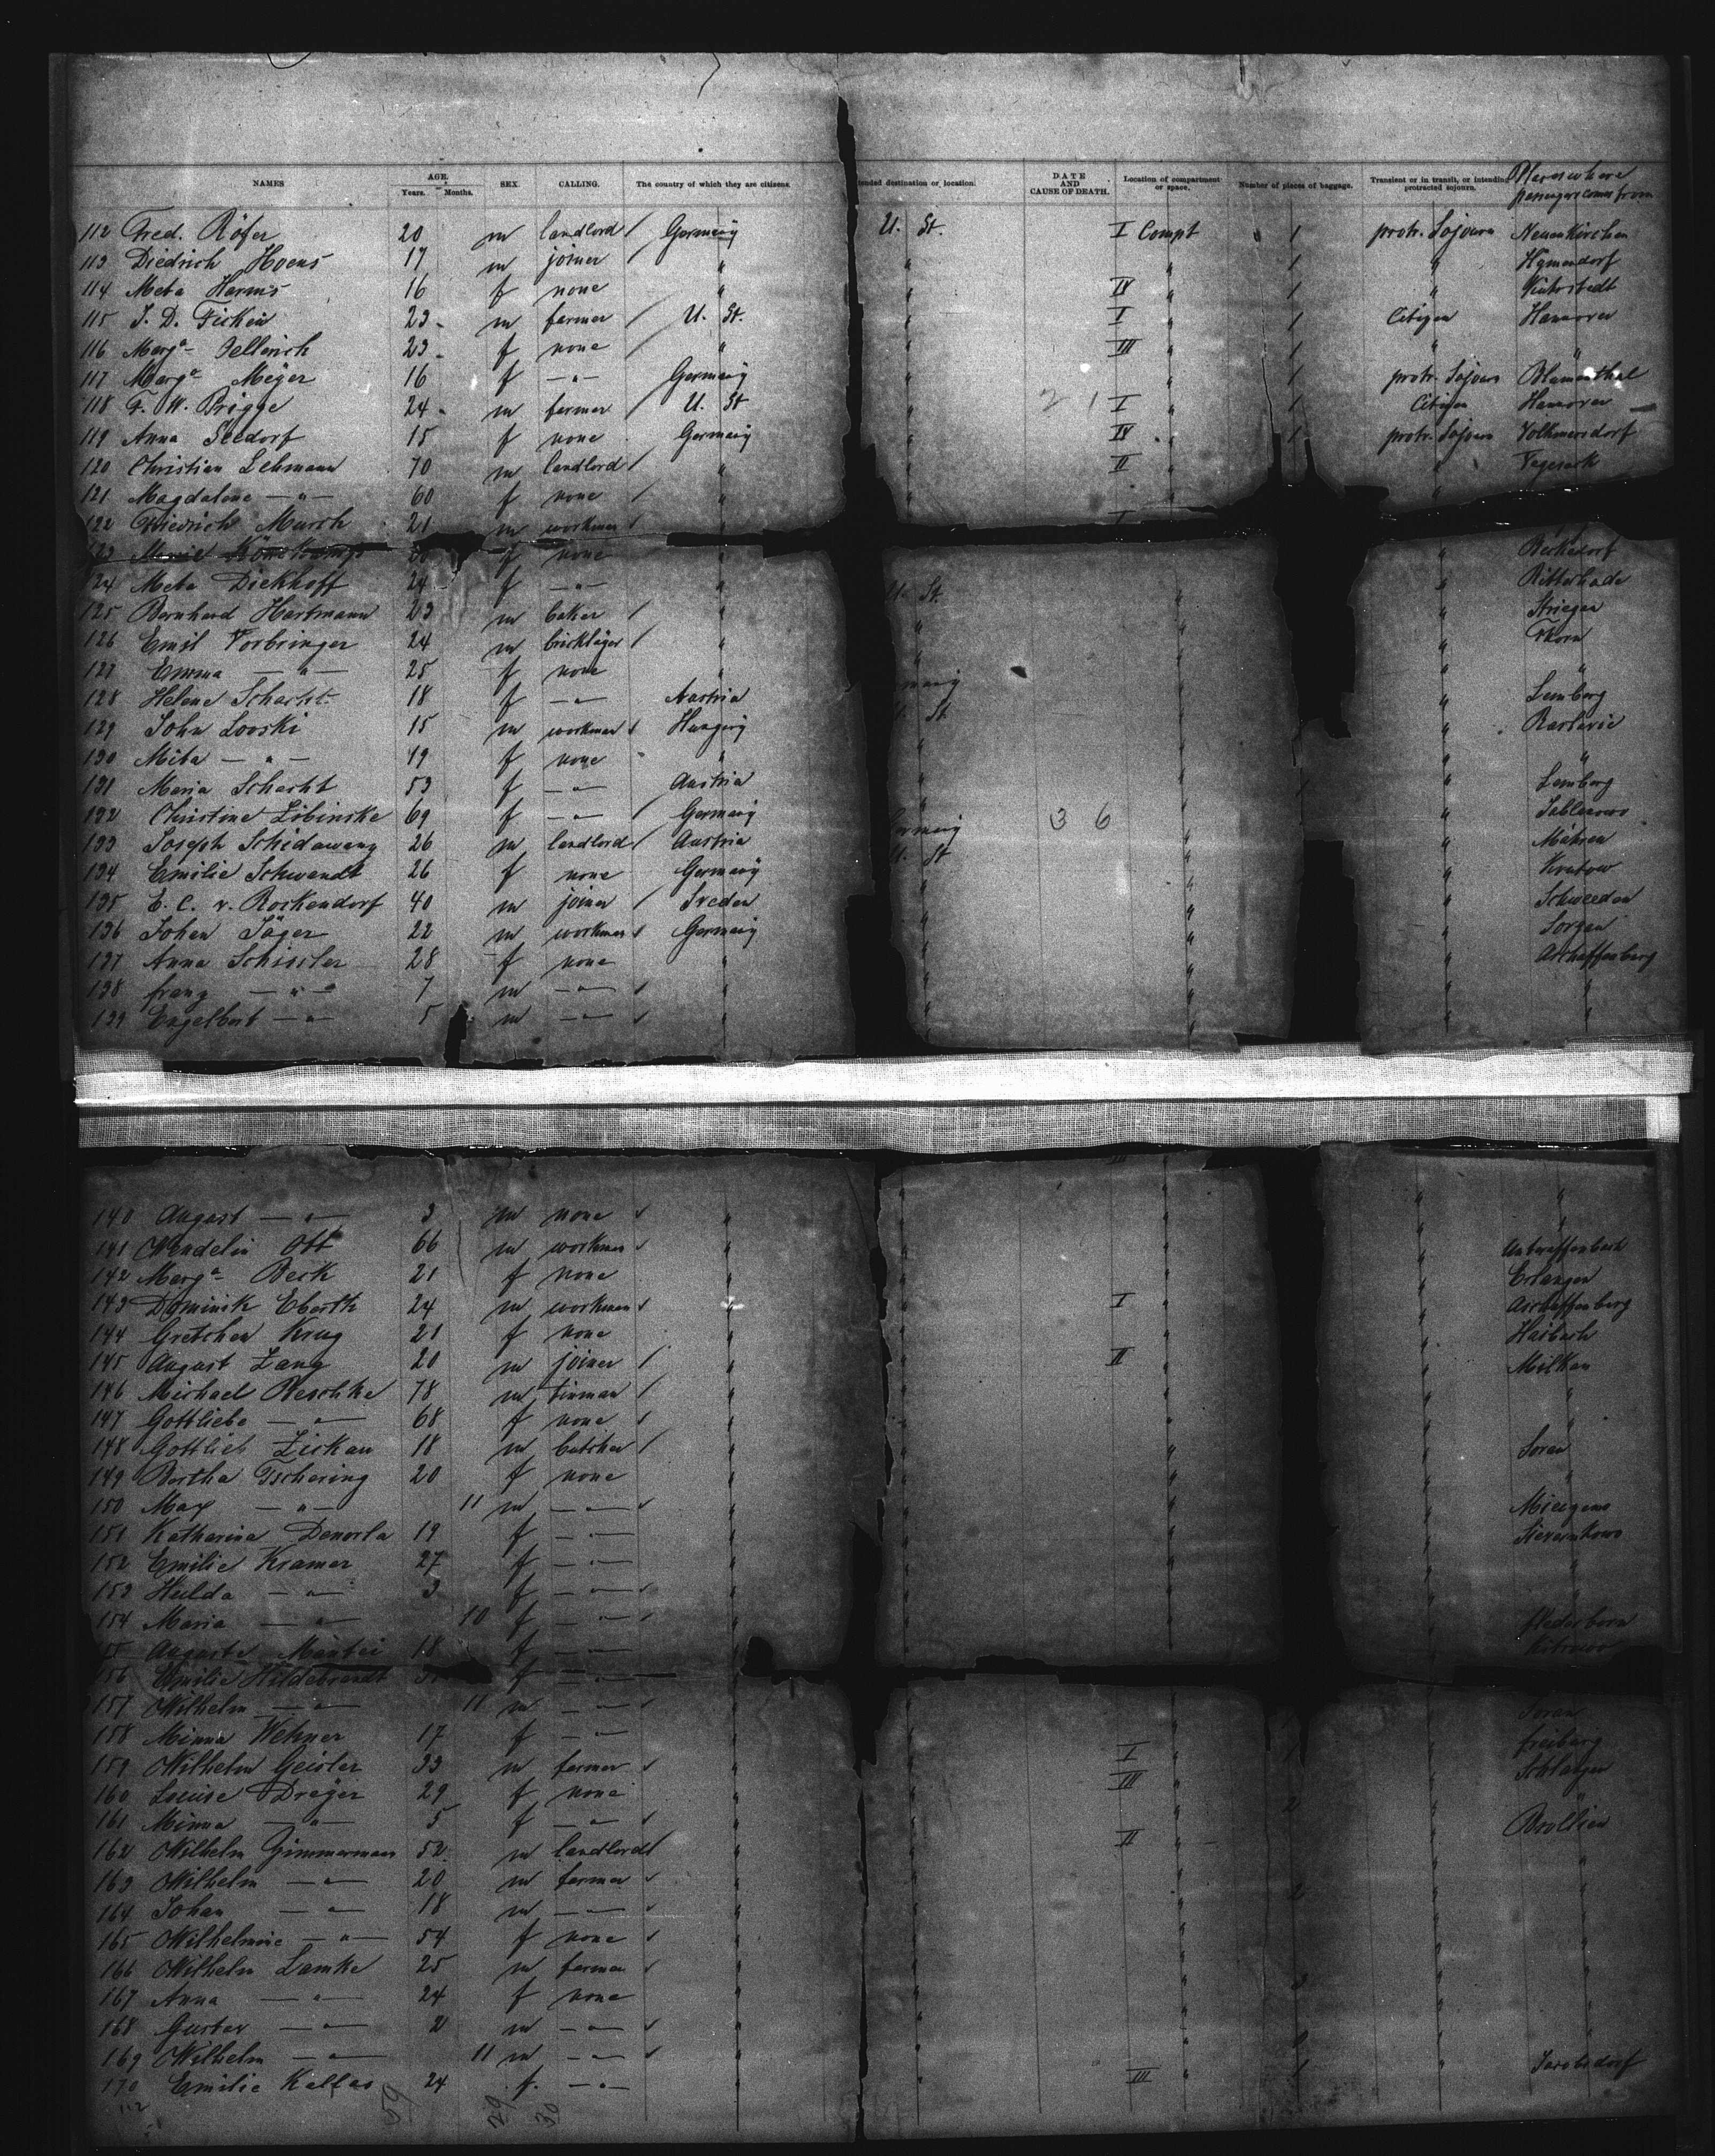 NAMES AGE. Years. Months. SEX. CALLING. The country of which they are citizens. ended destination or location. DATE AND CAUSE OF DEATH. Location of compartment or space. Number of pieces of baggage. Transient or in transit, or intending protracted sojourn. Places where passengers come from
112 Fred. Röfer 20 m landlord / Germany U. St. I Compt 1 protr. Sojourn Neuenkirchen
113 Diedrich Hoens 17 m joiner / " " " 1 " Hymendorf
114 Meta Harms 16 f none " " IV " 1 " Kührstedt
115 J. D. Ficken 23 m farmer / U. St. " I " 1 Citizen Hannover
116 Marga Jellerich 23 f none / " " III " 1 " "
117 Marga Meyer 16 f — " — Germany " " 1 protr. Sojourn Blumenthal
118 F. W. Brigge 24 m farmer / U. St " 21 I " 1 Citizen Hannover
119 Anna Seedorf 15 f none Germany " IV " 1 protr. Sojourn Volkmersdorf
120 Christian Lehmann 70 m landlord / " " II " " Vegesack
121 Magdalene — " — 60 f none / " " " " "
122 Diedrich Murch 21 m workman I
123 Marie f none " " Beckedorf
124 Meta Dieckhoff 24 f — " — " U. St. " " Ritterhude
125 Bernhard Hartmann 23 m baker / " " " " Striegau
126 Emil Vorbringer 24 m bricklayer / " " " " Thorn
127 Emma — " — 25 f none " many " " "
128 Helene Schacht 18 f — " — Austria U. St " " Lemberg
129 John Looski 15 m workman Hungary " " "
130 Mita — " — 19 f none " " " " "
131 Maria Schacht 53 f — " — Austria " " " Lemberg
132 Christine Libinske 69 f — " — / Germany ermany 36 "
133 Joseph Schidawang 26 m landlord / Austria U. St " " Mähren
134 Emilie Schwandt 26 f none Germany " " " Krutow
135 E. C. v. Rockendorf 40 m joiner / Sveden " " " Schweeden
136 Johan Jäger 22 m workman Germany " " " Sorgau
137 Anna Schissler 28 f none " " " " Aschaffenberg
138 franz — " — 7 m — " — " " " " "
139 Engelbert — " — 5 m — " — " " " " "
140 August — " — 3 m none " " " " "
141 Wendelin Ott 66 m workman " " " "
142 Marga Beck 21 f none " " " " Erlangen
143 Dominik Eberth 24 m workman " " I " " Aschaffenberg
144 Gretchen Krug 21 f none " " " " Haibach
145 August Zang 20 m joiner / " " II " " Milkau
146 Michael Reschke 78 m tinman / " " " " "
147 Gottliebe — " — 68 f none " " " " "
148 Gottlieb Zickau 18 m butcher / " " " " Sorau
149 Bertha Tschering 20 f none " " " " "
150 Max — " — 11 m — " — " " " "
151 Katharina Denorla 19 f — " — " " " "
152 Emilie Kramer 27 f — " — " " " " "
153 Hulda — " — 3 f — " — " " " " "
154 Maria — " — 10 f — " — " " " "
Auguste Mantei 18 f — " — " "
156 Emilie Hildebrandt f — " —
157 Wilhelm — " — 11 m — " — " " " " Sorau
158 Minna Wehner 17 f — " — " " " " freiberg
159 Wilhelm Geisler 33 m farmer " " I " 1 " Schlagen
160 Louise Dreyer 29 f none " " III " " "
161 Minna — " — 5 f — " — " " " 2 "
162 Wilhelm Zimmermann 52 m landlord / " " II " " "
163 Wilhelm — " — 20 m farmer " " " " "
164 Johan — " — 18 m — " — " " " 2 " "
165 Wilhelmine — " — 54 f none " " " " "
166 Wilhelm Lamke 25 m farmer " " " " "
167 Anna — " — 24 f none " " " 3 " "
168 Gustav — " — 2 m — " — " " " " "
169 Wilhelm — " — 11 m — " — " " " "
170 Emilie Kallas 24 f. — " — " III " 1 " Jacobsdorf
112 59 29 30